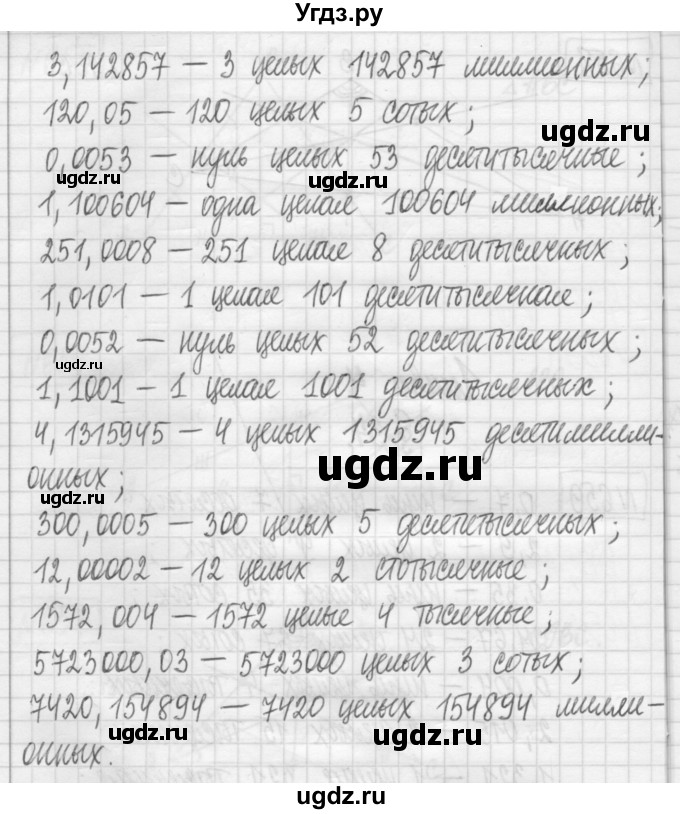 Угдз.ру
3,142857 — 3 целых 142857 миллионных;
120,05 — 120 целых 5 сотых;
ugdz.ru
0,0053 — нуль целых 53 десятитысячные;
ugdz.ru
ugdz.ru
1,100604 — одна целая 100604 миллионных;
251,0008 — 251 целая 8 десятитысячных;
1,0101 — 1 целая 101 десятитысячная;
0,0052 — нуль целых 52 десятитысячных;
ugdz.ru
1,1001 — 1 целая 1001 десятитысячных;
4,1315945 — 4 целых 1315945 десятимилли-
ugdz.ru
онных;
300,0005 — 300 целых 5 десятитысячных;
12,00002 — 12 целых 2 стотысячные;
1572,004 — 1572 целые 4 тысячные;
5723000,03 — 5723000 целых 3 сотых;
7420,154894 — 7420 целых 154894 милли-
ugdz.ru
ugdz.ru
онных.
ugdz.ru